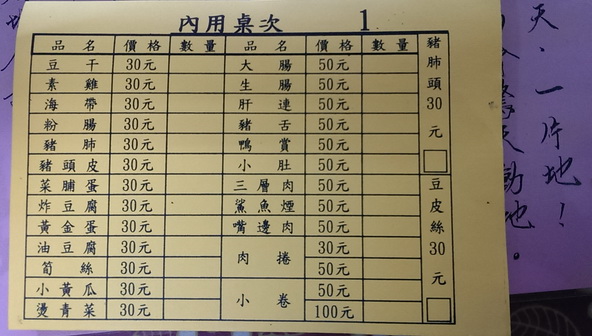 內用桌次 1
品名 價格 數量 品名 價格 數量
豆干 30元 大腸 50元
素雞 30元 生腸 50元
海帶 30元 肝連 50元
粉腸 30元 豬舌 50元
豬肺 30元 鴨賞 50元
豬頭皮 30元 小肚 50元
菜脯蛋 30元 三層肉 50元
炸豆腐 30元 鯊魚煙 50元
黃金蛋 30元 嘴邊肉 50元
油豆腐 30元 肉捲 30元
筍絲 30元 50元
小黃瓜 30元 小卷 50元
燙青菜 30元 100元
豬肺頭30元
豆皮絲30元
天、一片地！
動地。